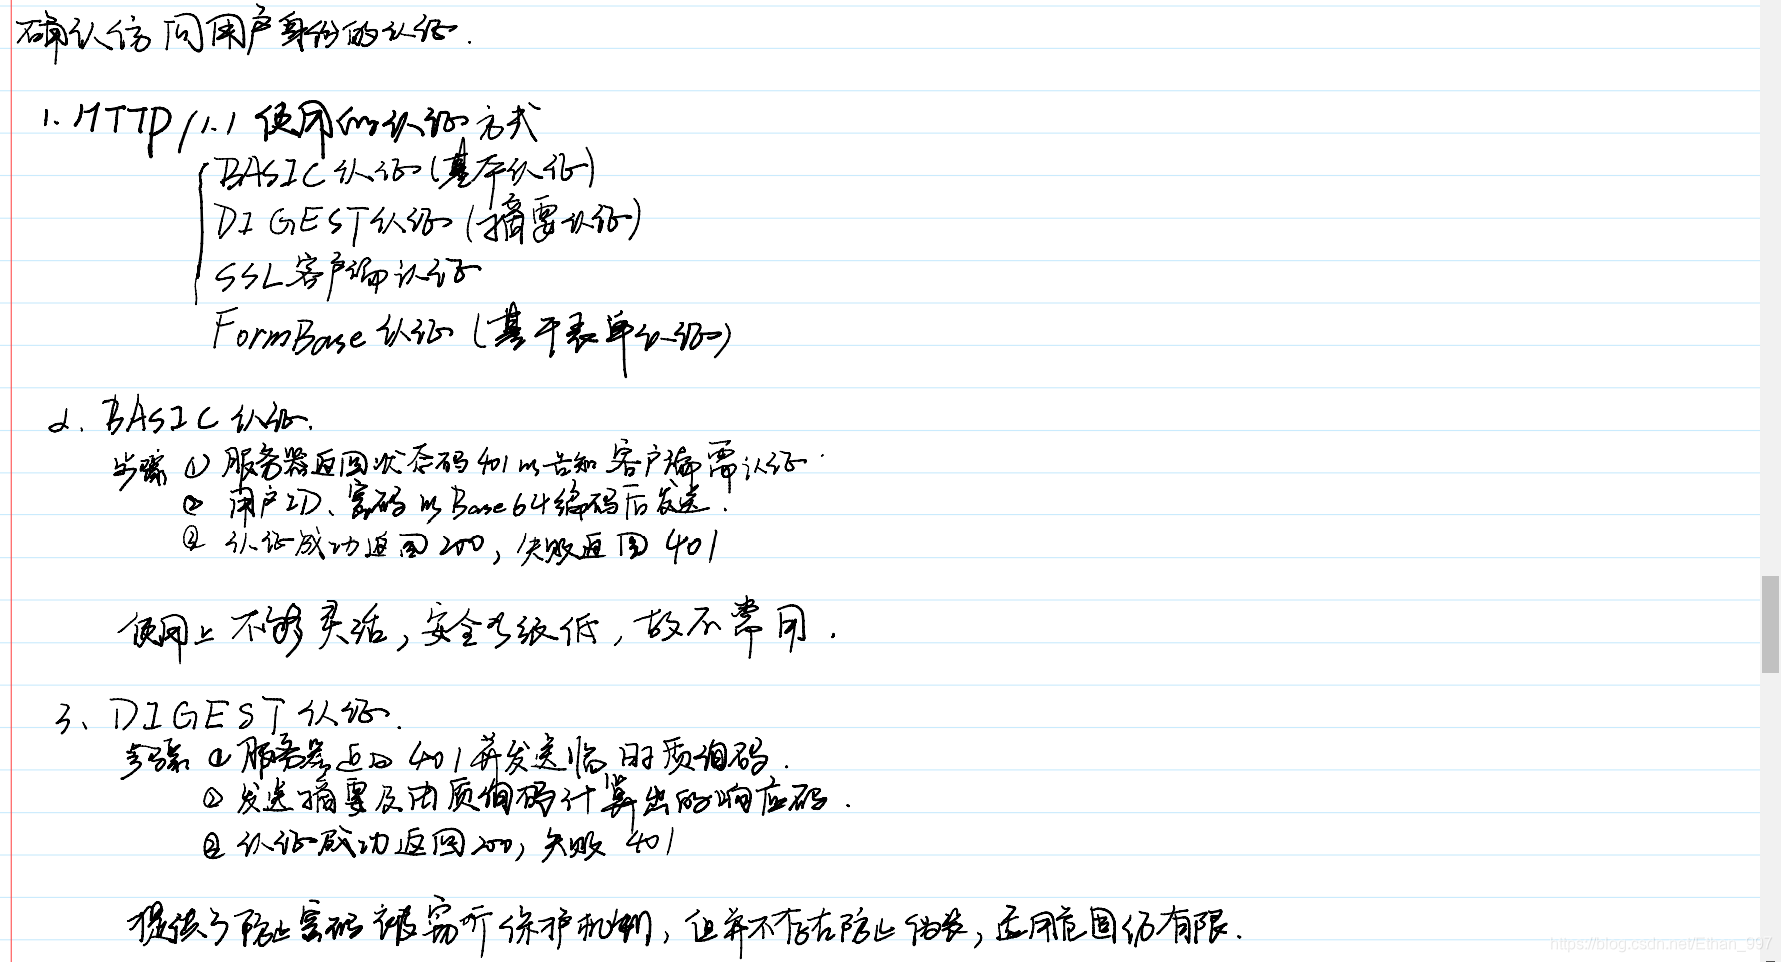 确认访问用户身份的认证.
1. HTTP/1.1 使用的认证方式
BASIC 认证(基本认证)
DIGEST 认证(摘要认证)
SSL 客户端认证
FormBase 认证(基于表单认证)
2. BASIC 认证.
步骤 ① 服务器返回状态码401以告知客户端需认证.
② 用户ID、密码以Base64编码后发送.
③ 认证成功返回200, 失败返回401
使用上不够灵活, 安全等级低, 故不常用.
3、DIGEST 认证.
步骤 ① 服务器返回401并发送临时质询码.
② 发送摘要及由质询码计算出的响应码.
③ 认证成功返回200, 失败401
提供了防止密码被窃听保护机制, 但并不存在防止伪装, 适用范围仍有限.
https://blog.csdn.net/Ethan_997